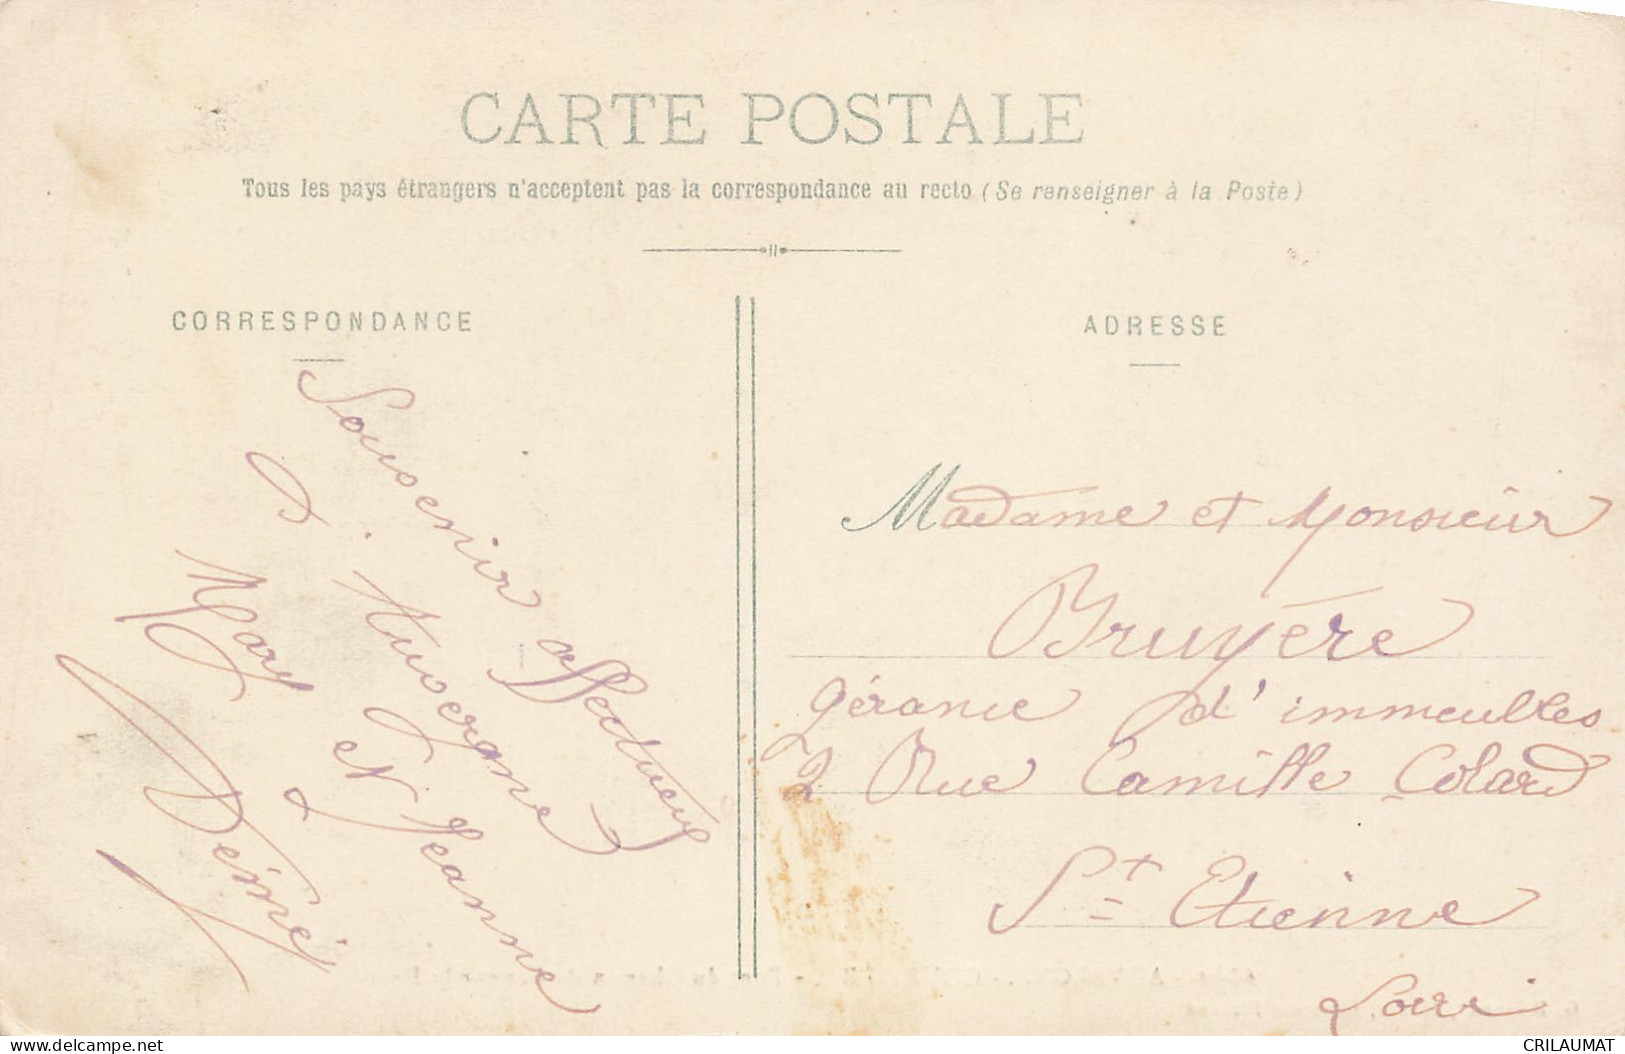 CARTE POSTALE
Tous les pays étrangers n'acceptent pas la correspondance au recto (Se renseigner à la Poste)
CORRESPONDANCE
Souvenir affectueux
D'Auvergne
Mary et Jeanne
ADRESSE
Madame et Monsieur
Bruyére
gérance d'immeubles
2 Rue Camille Colard
St Etienne
Loire
www.delcampe.net
CRILAUMAT